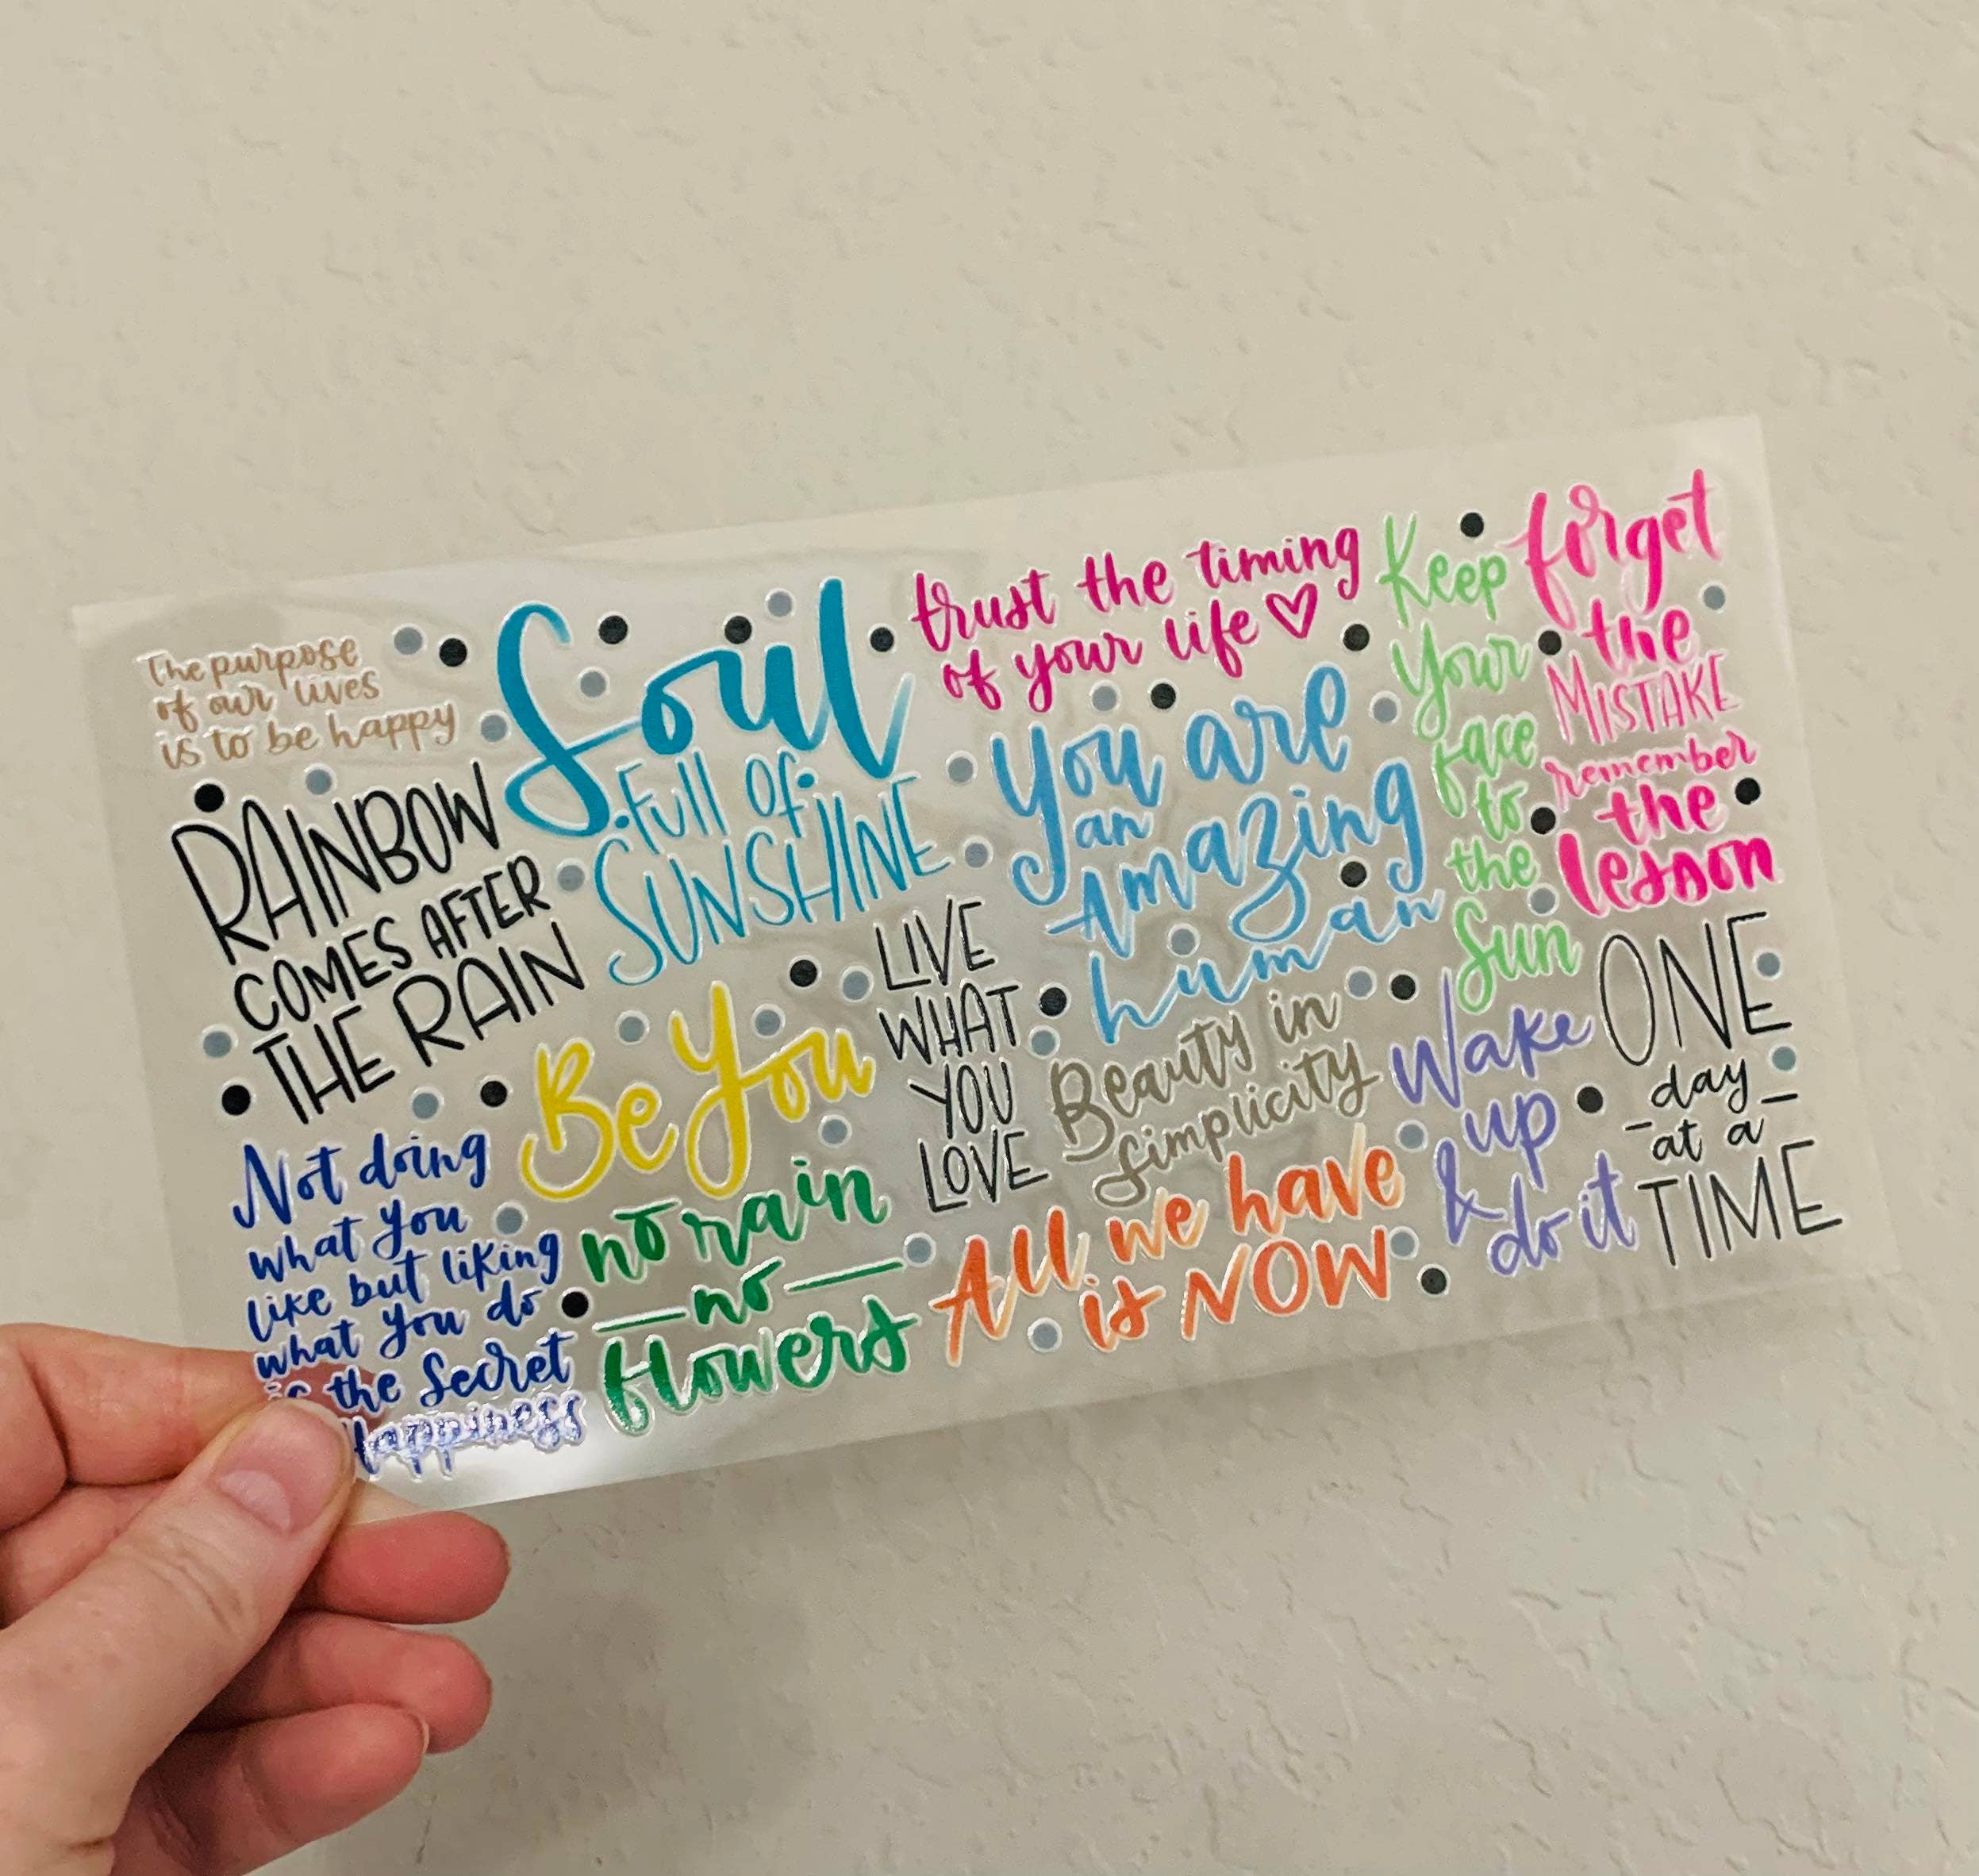 The purpose
of our lives
is to be happy
RAINBOW
COMES AFTER
THE RAIN
Not doing
what you
like but liking
what you do
the Secret
Happiness
Soul
Full of
SUNSHINE
Be You
no rain
no
flowers
trust the timing
of your life
You are
an
Amazing
human
LIVE
WHAT
YOU
LOVE
Beauty in
simplicity
All we have
is NOW
Keep
Your
face
to
the
Sun
Wake
up
&
do it
forget
the
MISTAKE
remember
the
lesson
ONE
day
at a
TIME